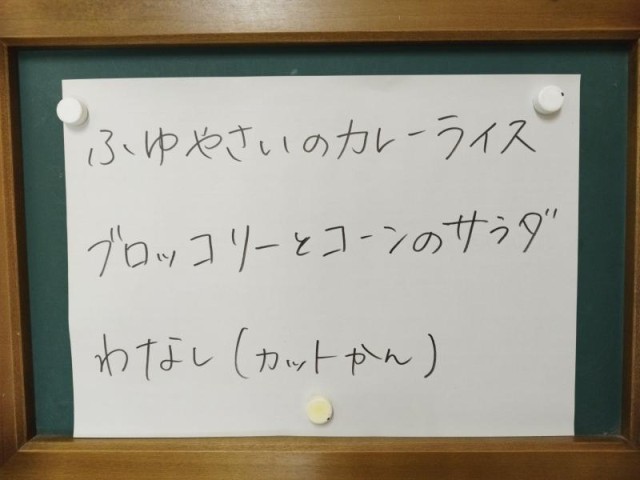 ふゆやさいのカレーライス
ブロッコリーとコーンのサラダ
わなし(カットかん)